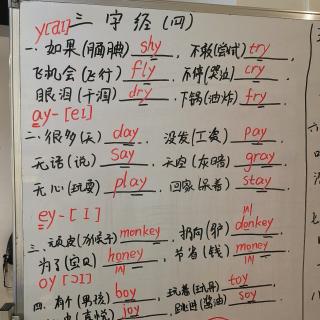 y[aI] 三字经(四)
一. 如果(腼腆) shy. 不敢(尝试) try
飞机会(飞行) fly. 不停(哭泣) cry.
眼泪(干涸) dry. 下锅(油炸) fry.
ay-[eI]
二. 很多(天) day 没发(工资) pay.
无语(说) say. 天空(灰暗) gray
无心(玩耍) play. 回家(呆着) stay.
ey-[I]
三. 顽皮(猴子) monkey 扔向(驴) donkey
为了(宝贝) honey 节省(钱) money
oy [ɔI]
四. 有个(男孩) boy 玩着(玩具) toy
(喜悦) joy (酱油) soy